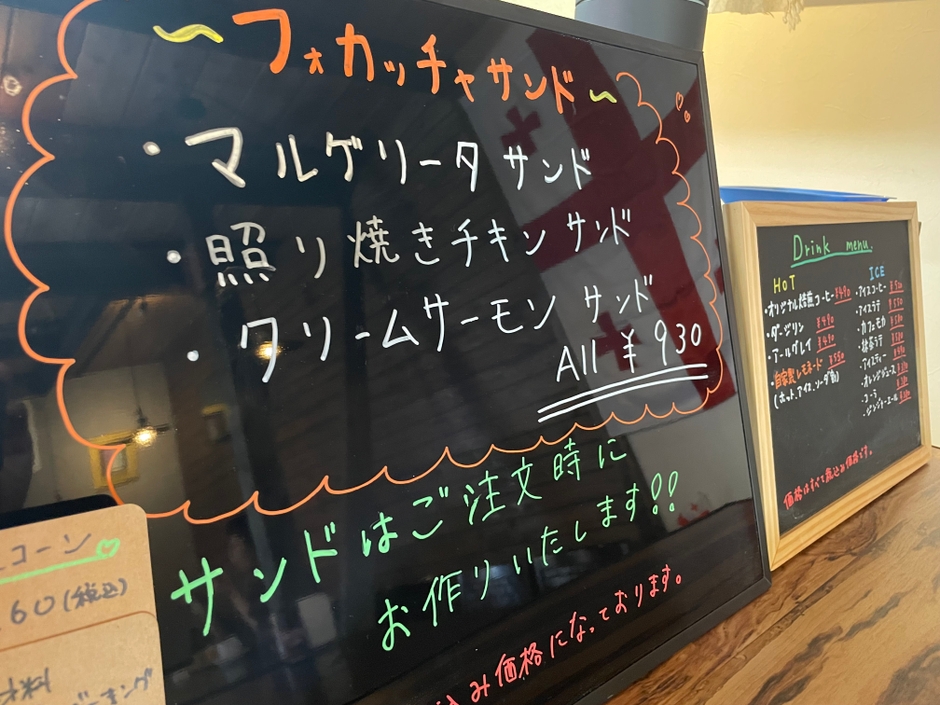 ~フォカッチャサンド~
・マルゲリータサンド
・照り焼きチキンサンド
・クリームサーモンサンド
All ¥930
サンドはご注文時に
お作りいたします!!
込み価格になっております。
コーン
60(税込)
料
Drink menu.
HOT
・オリジナル焙煎コーヒー ¥490
・ダージリン ¥490
・アールグレイ ¥490
・自家製レモネード ¥550
(ホット、アイス、ソーダ割)
ICE
・アイスコーヒー
・アイスラテ
・カフェモカ
・抹茶ラテ
・アイスティー
・オレンジジュース
・コーラ
・ジンジャーエール
価格はすべて税込み価格です。